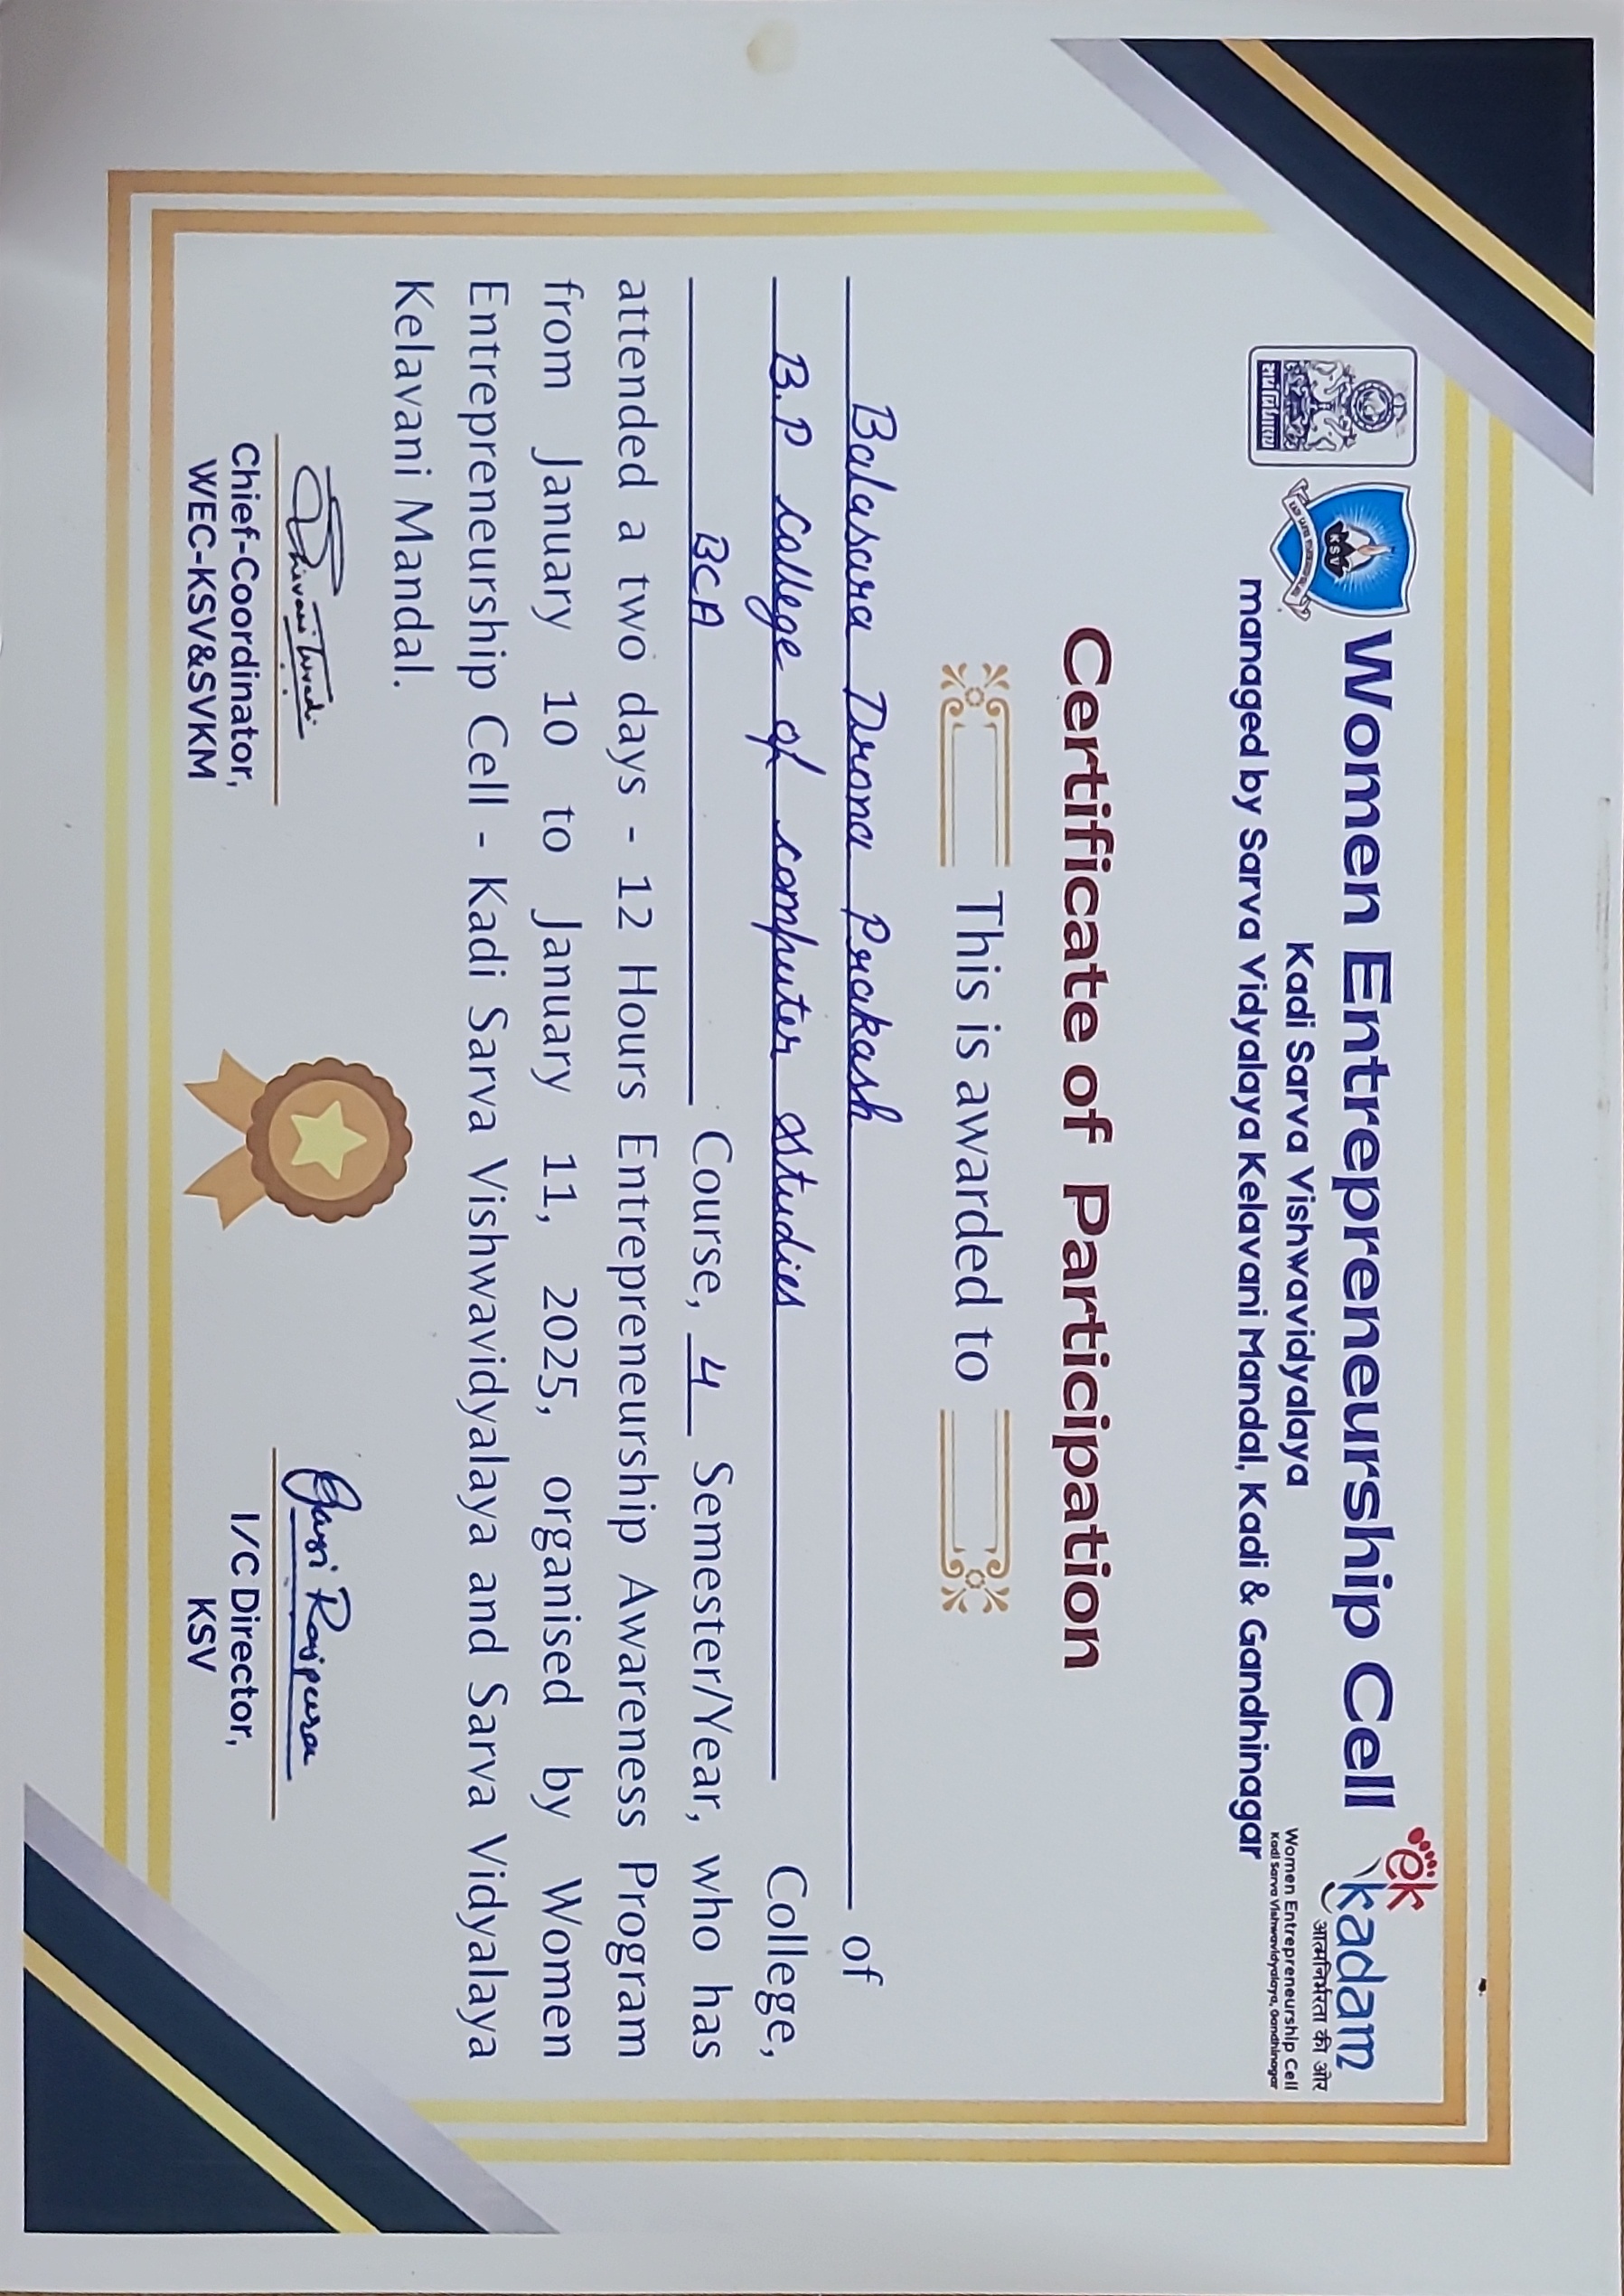 Women Entrepreneurship Cell
Kadi Sarva Vishwavidyalaya
managed by Sarva Vidyalaya Kelavani Mandal, Kadi & Gandhinagar
KSV
ek
kadam
आत्मनिर्भरता की ओर
Women Entrepreneurship Cell
Kadi Sarva Vishwavidyalaya, Gandhinagar
Certificate of Participation
This is awarded to
Balasara Drona Prakash of
B.P College of computer Studies College,
BCA Course, 4 Semester/Year, who has
attended a two days - 12 Hours Entrepreneurship Awareness Program
from January 10 to January 11, 2025, organised by Women
Entrepreneurship Cell - Kadi Sarva Vishwavidyalaya and Sarva Vidyalaya
Kelavani Mandal.
Rajpura
Chief-Coordinator,
WEC-KSV&SVKM
I/C Director,
KSV